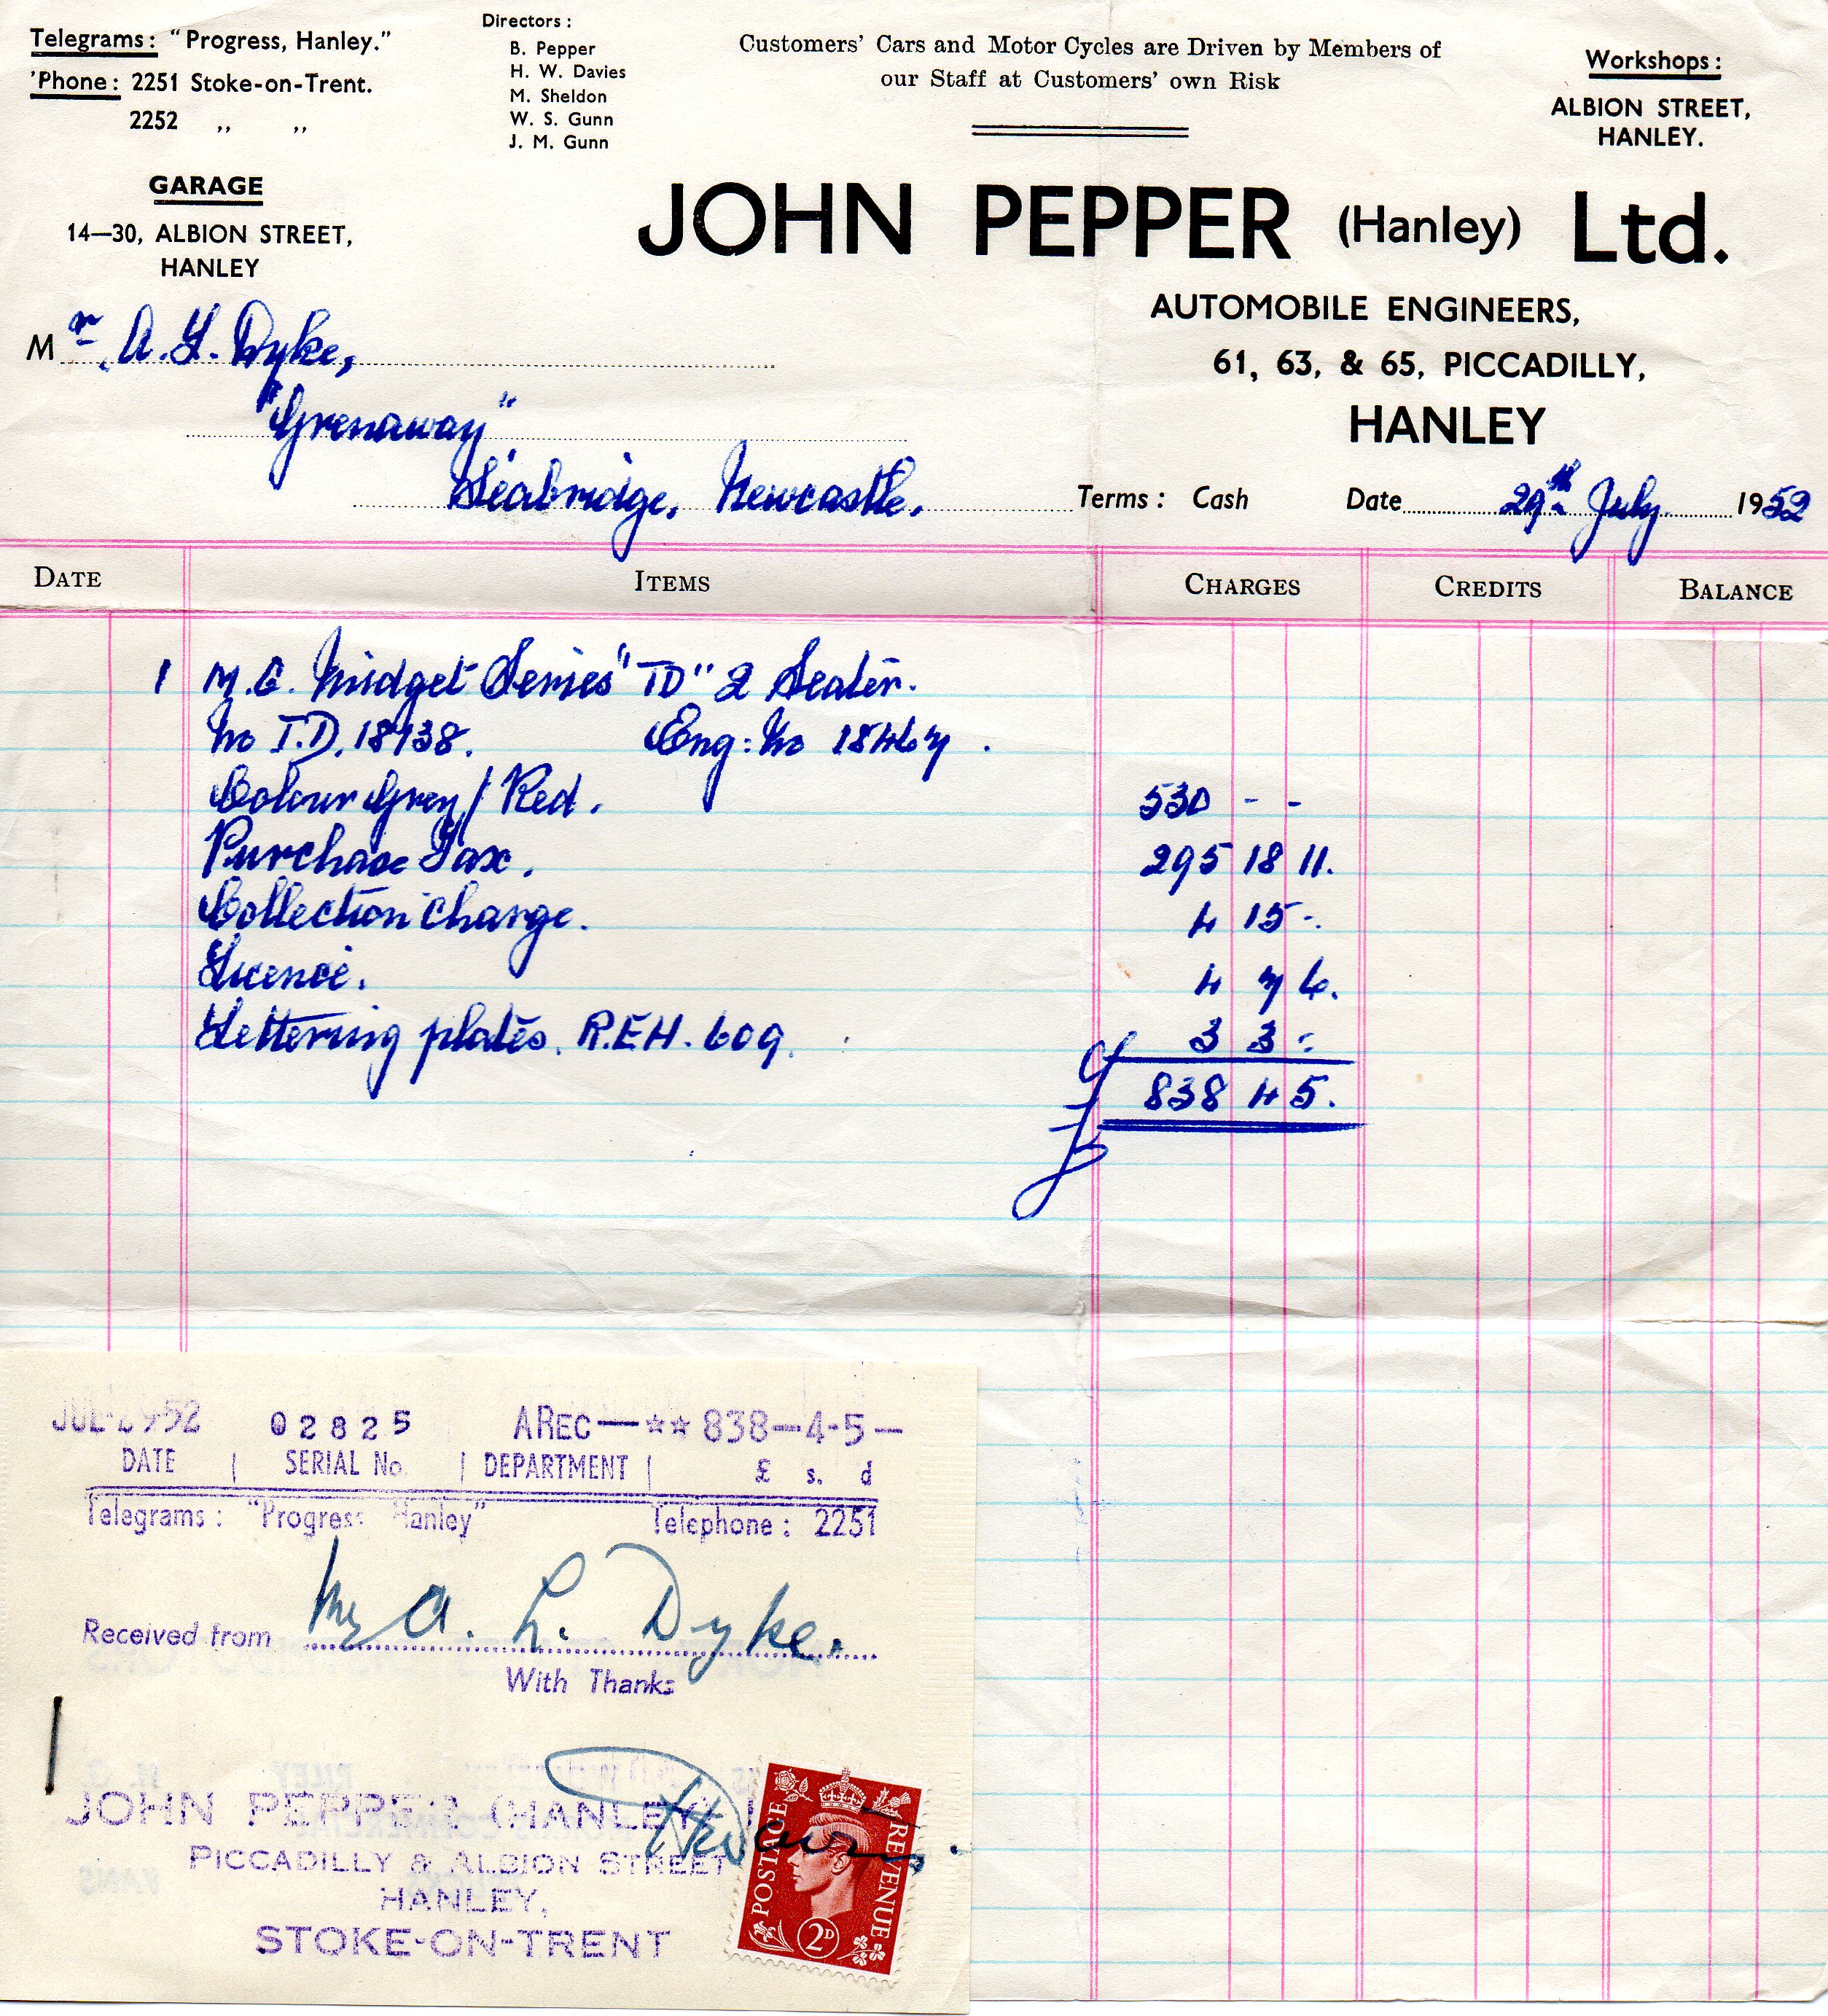 Telegrams: "Progress, Hanley."
'Phone: 2251 Stoke-on-Trent.
2252 ,, ,,
Directors:
B. Pepper
H. W. Davies
M. Sheldon
W. S. Gunn
J. M. Gunn
Customers' Cars and Motor Cycles are Driven by Members of
our Staff at Customers' own Risk
Workshops:
ALBION STREET,
HANLEY.
GARAGE
14—30, ALBION STREET,
HANLEY
JOHN PEPPER (Hanley) Ltd.
AUTOMOBILE ENGINEERS,
61, 63, & 65, PICCADILLY,
HANLEY
Mr. A. L. Dyke,
"Grenaway"
Seabridge, Newcastle.
Terms: Cash Date 29th July 1952
DATE ITEMS CHARGES CREDITS BALANCE
1 M.G. Midget Series "TD" 2 Seater.
No T.D. 18738. Eng: No 18467.
Colour Grey/Red. 530 - -
Purchase Tax. 295 18 11.
Collection Charge. 4 15 -.
Licence. 4 7 6.
Lettering plates. R.E.H. 609. 3 3 -
£ 838 4 5.
JUL 29 52 02825 AREC—** 838—4-5—
DATE | SERIAL No. | DEPARTMENT | £ s. d
Telegrams: "Progress Hanley" Telephone: 2251
Received from Mr A. L. Dyke.
With Thanks
JOHN PEPPER (HANLEY)
PICCADILLY & ALBION STREET
HANLEY,
STOKE-ON-TRENT
POSTAGE REVENUE
2D